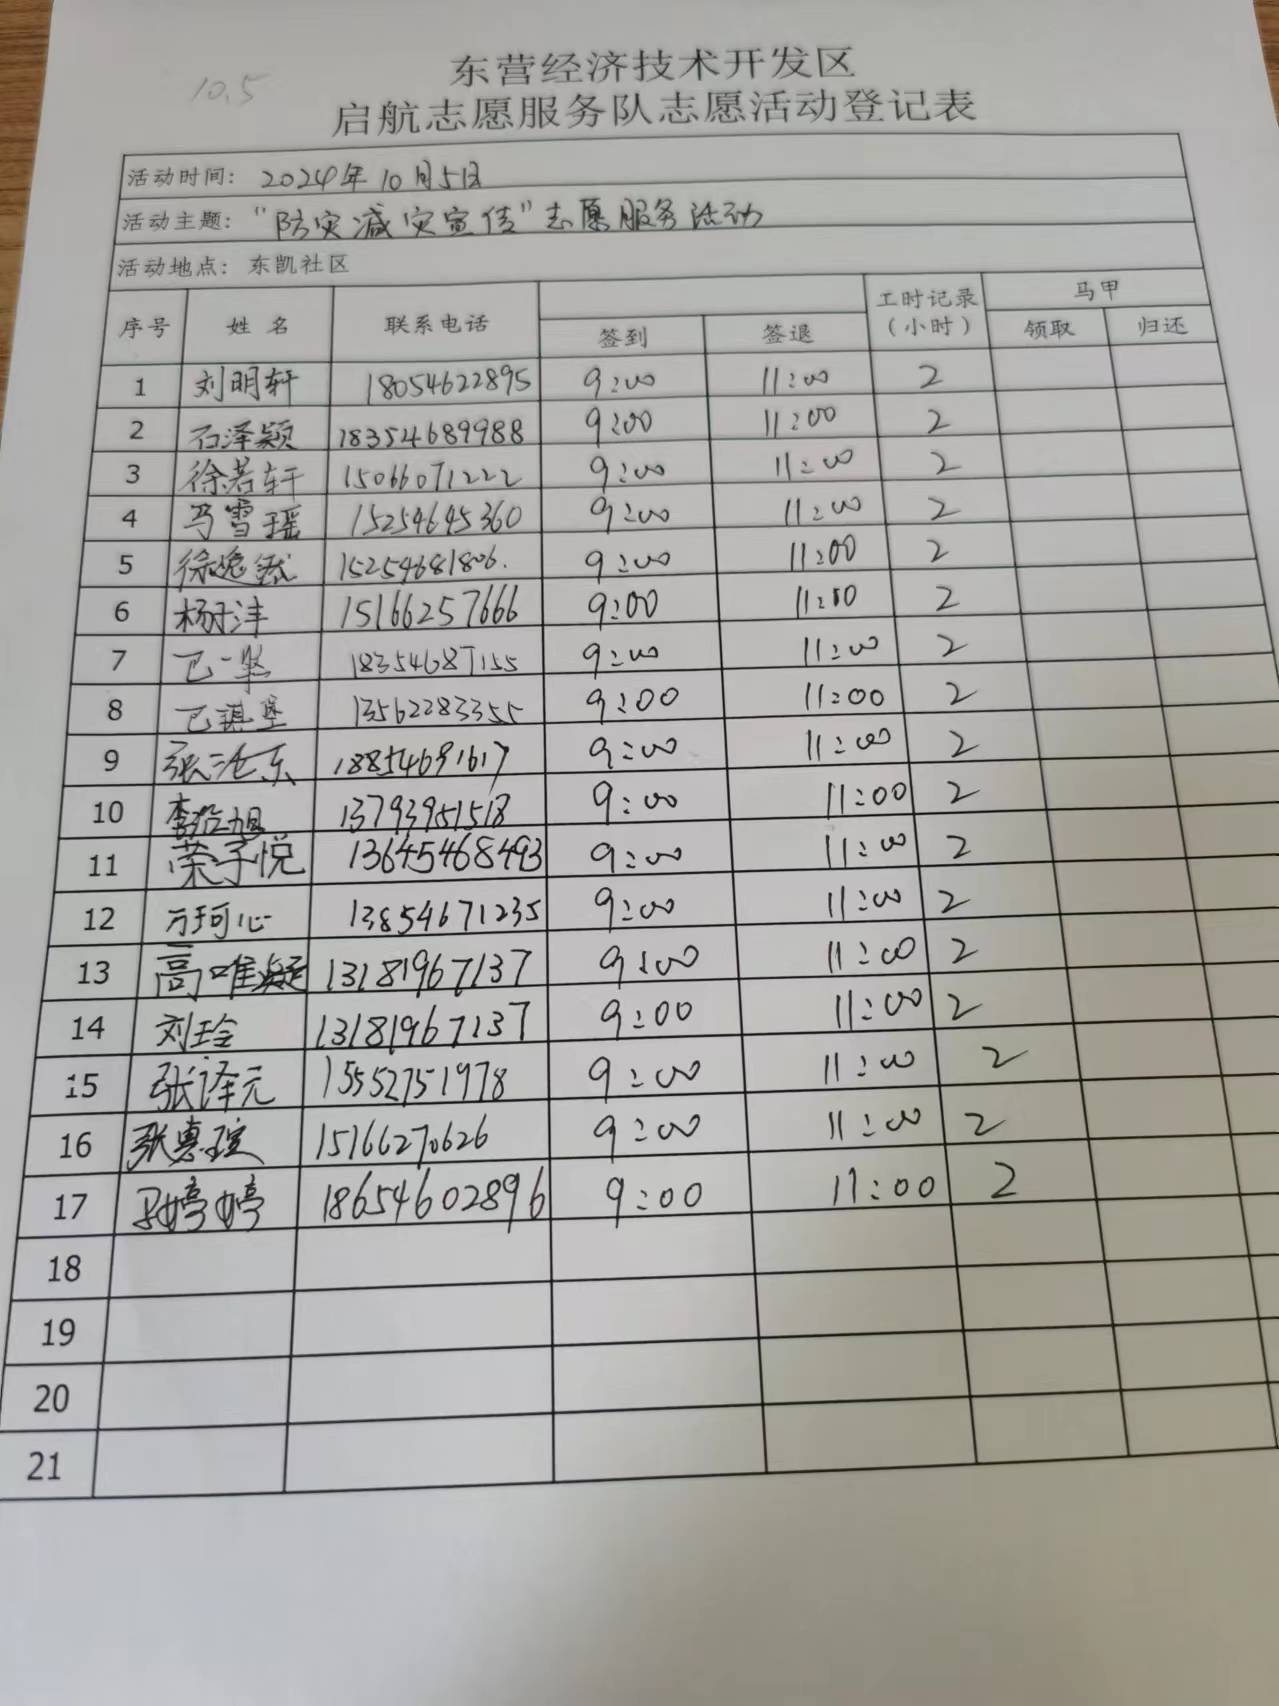 10.5
东营经济技术开发区
启航志愿服务队志愿活动登记表
活动时间：2024年10月5日
活动主题："防灾减灾宣传"志愿服务活动
活动地点：东凯社区
序号 姓名 联系电话 签到 签退 工时记录（小时） 马甲 领取 归还
1 刘明轩 18054622895 9:00 11:00 2
2 石泽颖 18354689988 9:00 11:00 2
3 徐若轩 15066071222 9:00 11:00 2
4 马雪瑶 15254645360 9:00 11:00 2
5 徐逸 15254681806. 9:00 11:00 2
6 杨沣 15166257666 9:00 11:00 2
7 15 18354687155 9:00 11:00 2
8 13562283355 9:00 11:00 2
9 张东 18854691617 9:00 11:00 2
10 李旭 13793951518 9:00 11:00 2
11 荣子悦 13645468493 9:00 11:00 2
12 万珂心 13854671235 9:00 11:00 2
13 高唯凝 13181967137 9:00 11:00 2
14 刘玲 13181967137 9:00 11:00 2
15 张泽元 15552751978 9:00 11:00 2
16 张惠瑄 15166270626 9:00 11:00 2
17 婷婷 18654602896 9:00 11:00 2
18
19
20
21